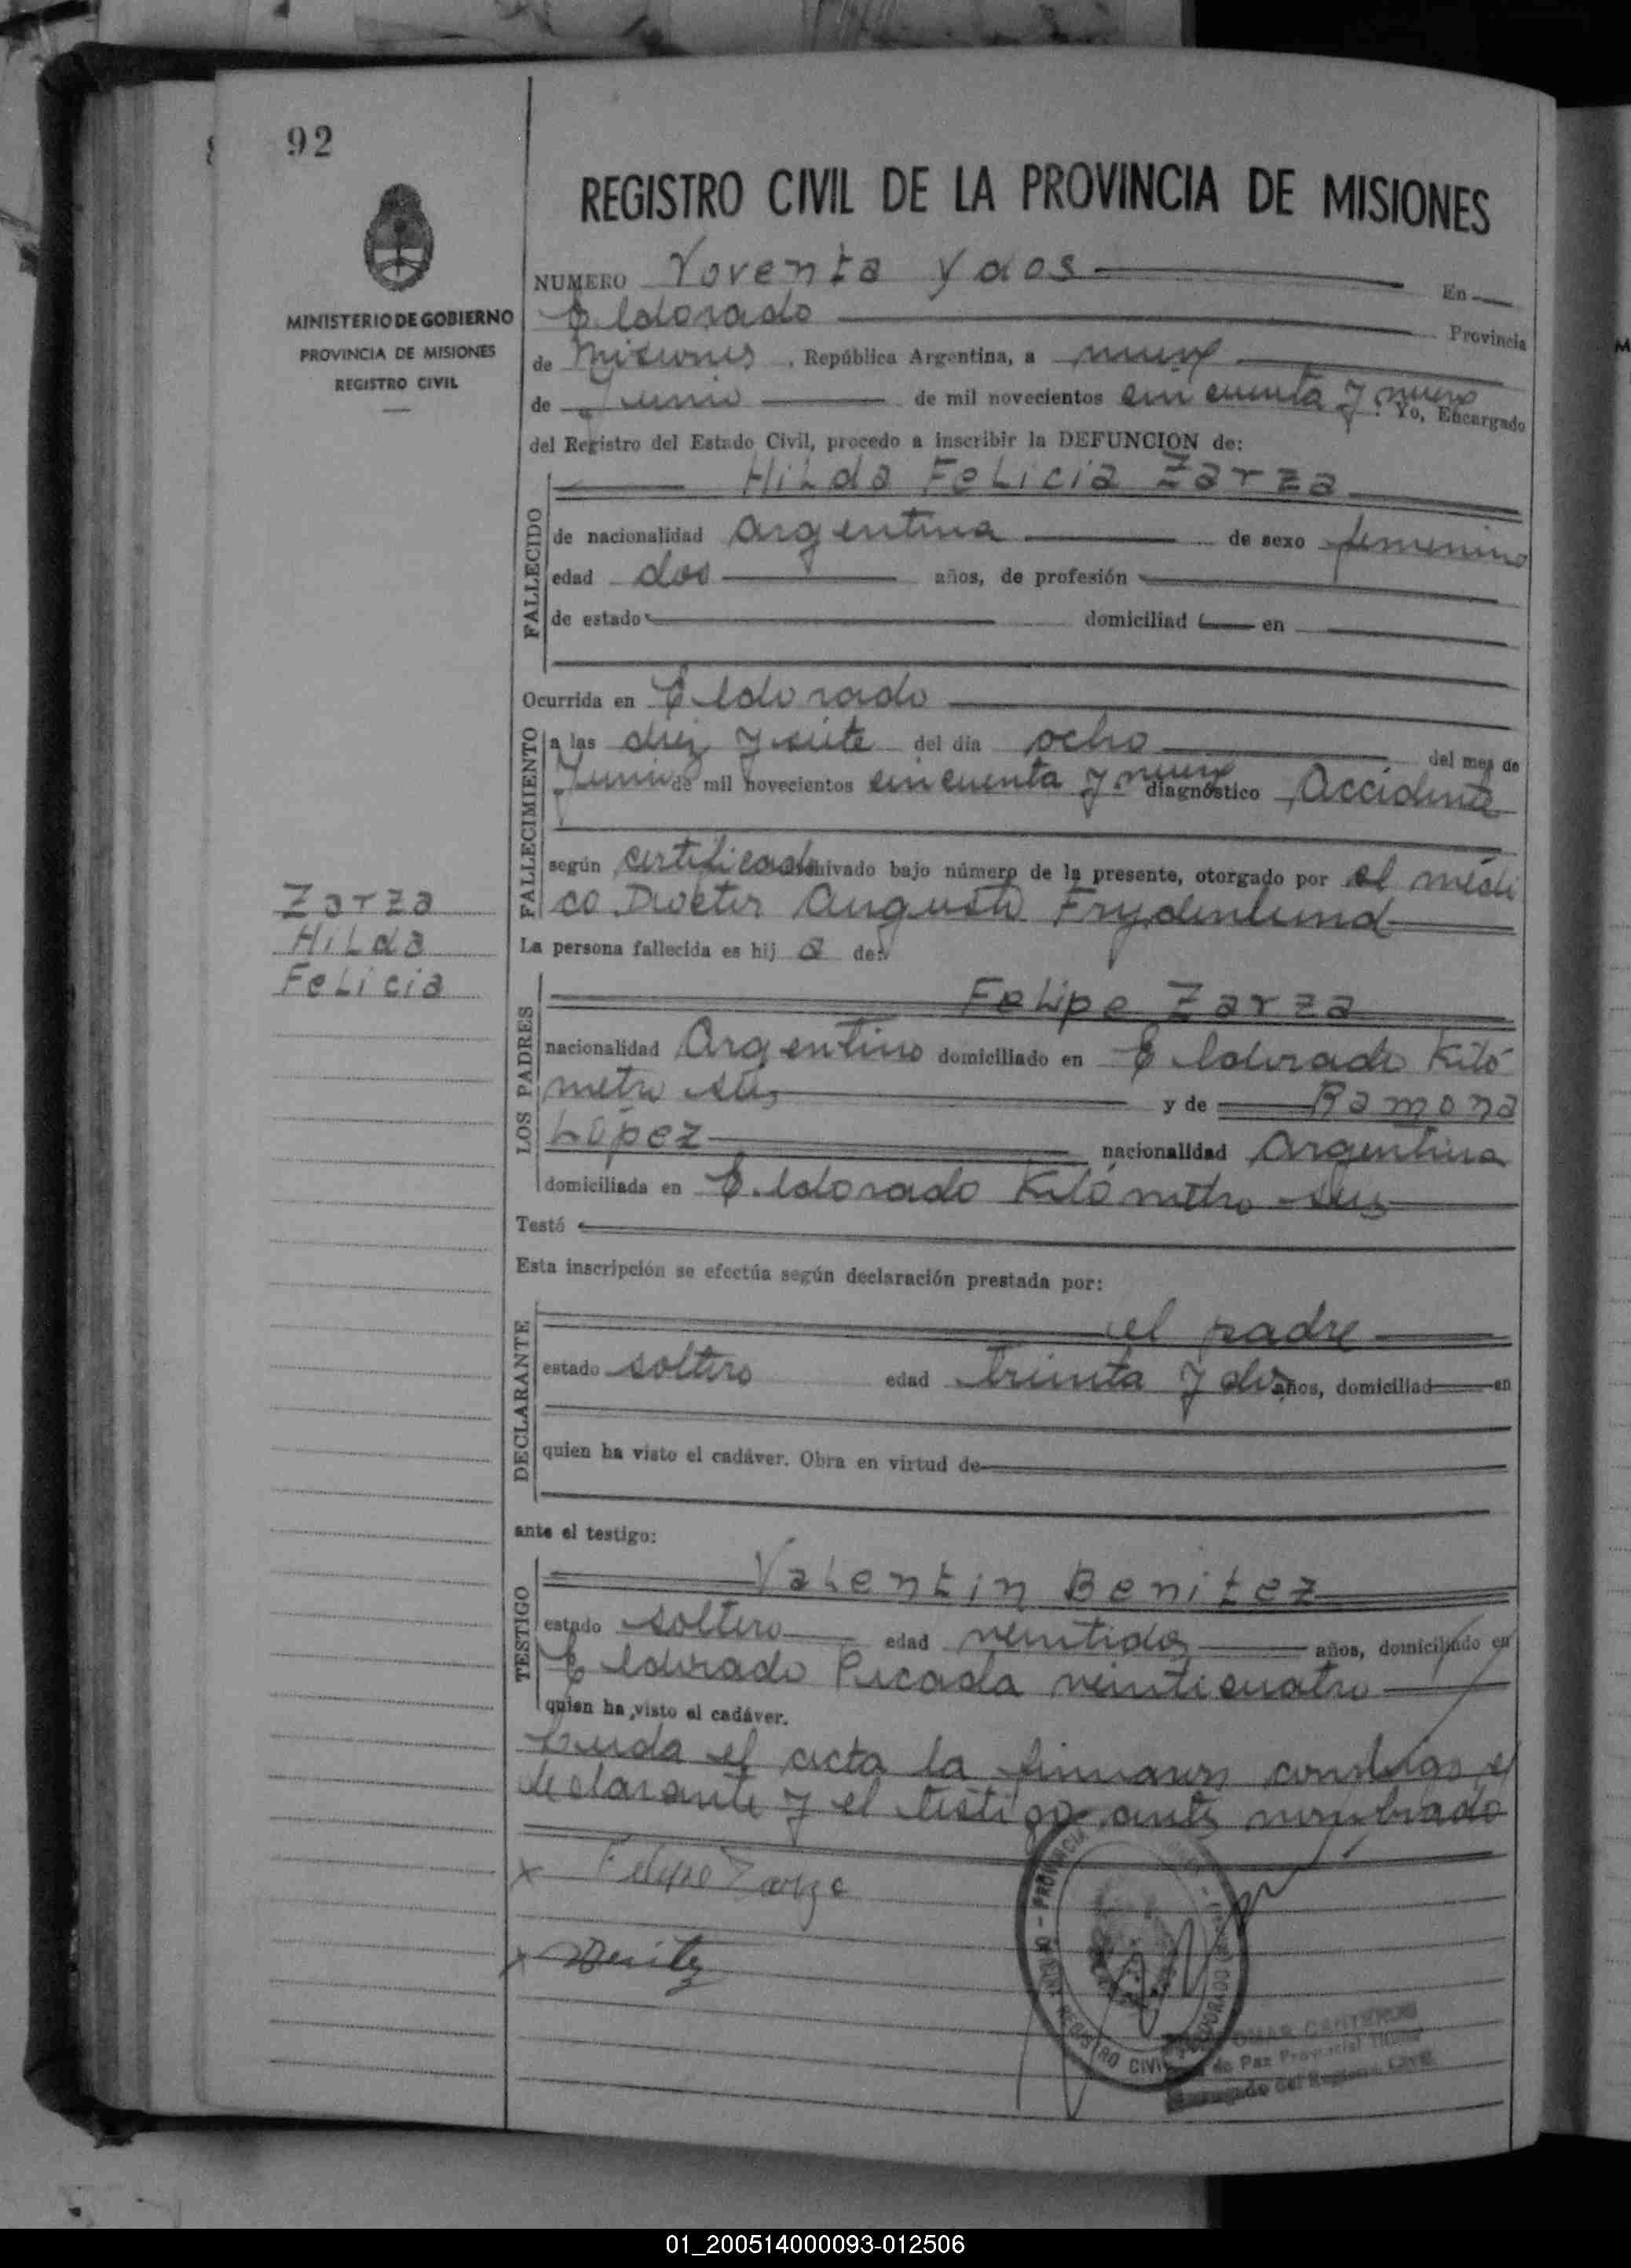 92
REGISTRO CIVIL DE LA PROVINCIA DE MISIONES
MINISTERIO DE GOBIERNO
PROVINCIA DE MISIONES
REGISTRO CIVIL
NUMERO Noventa y dos En
Eldorado Provincia
de Misiones , República Argentina, a nueve
de Junio de mil novecientos cincuenta y nueve . Yo, Encargado
del Registro del Estado Civil, procedo a inscribir la DEFUNCION de:
Hilda Felicia Zarza
FALLECIDO
de nacionalidad argentina de sexo femenino
edad dos años, de profesión
de estado domiciliad en
Ocurrida en Eldorado
FALLECIMIENTO
a las diez y siete del día ocho del mes de
Junio de mil novecientos cincuenta y nueve diagnóstico Accidente
según certificado archivado bajo número de la presente, otorgado por el médi
co Doctor Augusto Frydenlund
Zarza
Hilda
Felicia
La persona fallecida es hij a de:
LOS PADRES
Felipe Zarza
nacionalidad Argentino domiciliado en Eldorado Kiló
metro seis y de Ramona
López nacionalidad Argentina
domiciliada en Eldorado Kilómetro seis
Testó
Esta inscripción se efectúa según declaración prestada por:
DECLARANTE
el padre
estado soltero edad treinta y dos años, domiciliad en
quien ha visto el cadáver. Obra en virtud de
ante el testigo:
TESTIGO
Valentín Benitez
estado soltero edad veintidos años, domiciliado en
Eldorado Picada veinticuatro
quien ha visto el cadáver.
Leida el acta la firmaron conmigo el
declarante y el testigo antes nombrado
x Felipe Zarza
x Benitez
PROVINCIA
REGISTRO CIVIL
ELDORADO
OMAR CANTEROS
de Paz Provincial Titular
Encargado del Registro Civil
01_200514000093-012506